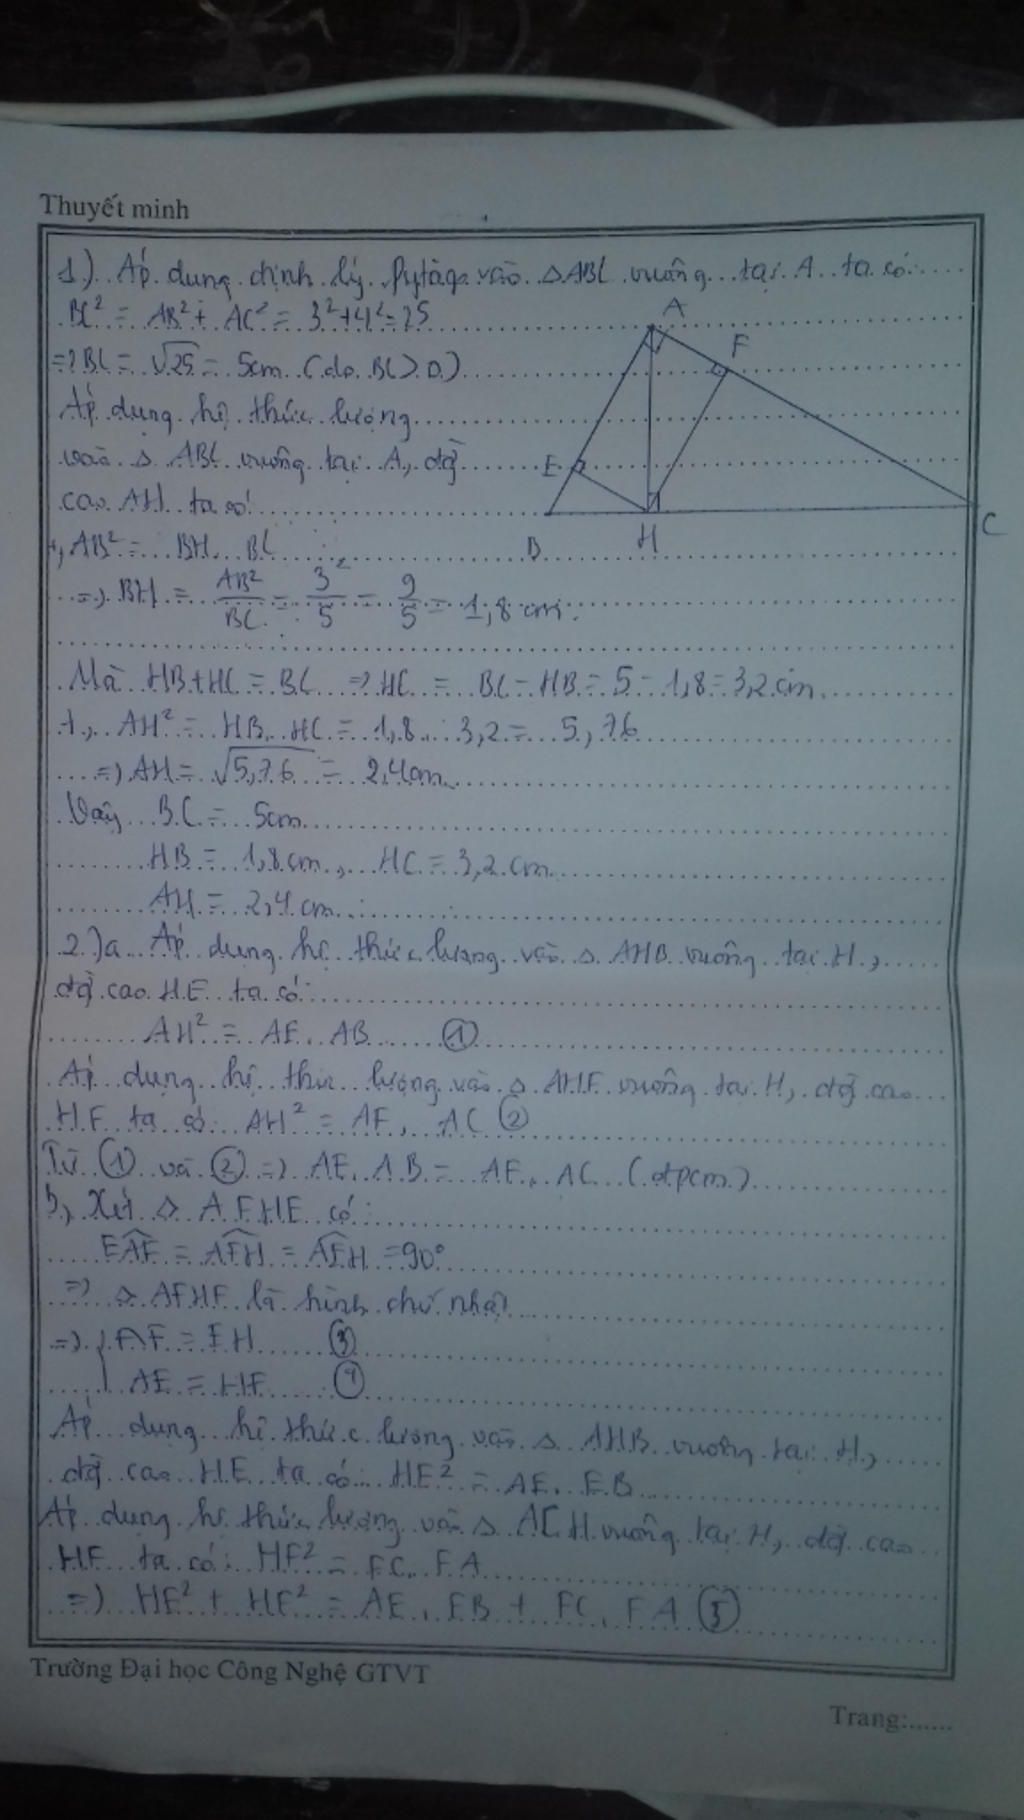 Thuyết minh
1) Áp dụng định lý Pytago vào Δ ABC vuông tại A ta có:
BC² = AB² + AC² = 3² + 4² = 25
=> BC = √25 = 5cm (do BC > 0)
Áp dụng hệ thức lượng
vào Δ ABC vuông tại A, đg
cao AH ta có
+, AB² = BH . BC
=> BH = AB²/BC = 3²/5 = 9/5 = 1,8 cm.
Mà HB + HC = BC => HC = BC - HB = 5 - 1,8 = 3,2 cm
+, AH² = HB . HC = 1,8 . 3,2 = 5,76
=> AH = √5,76 = 2,4 cm
Vậy BC = 5cm
HB = 1,8 cm, HC = 3,2 cm
AH = 2,4 cm
A
F
E
B
H
C
2)a Áp dụng hệ thức lượng vào Δ AHB vuông tại H,
đg cao HE ta có:
AH² = AE . AB ①
Áp dụng hệ thức lượng vào Δ AHF vuông tại H, đg cao
HF ta có: AH² = AF . AC ②
Từ ① và ② => AE . AB = AF . AC (đpcm)
b, Xét AFHE có:
EAF = AFH = AEH = 90°
=> AFHE là hình chữ nhật
=> { AF = EH ③
AE = HF ④
Áp dụng hệ thức lượng vào Δ AHB vuông tại H,
đg cao HE ta có HE² = AE . EB
Áp dụng hệ thức lượng vào Δ ACH vuông tại H, đg cao
HF ta có: HF² = FC . FA
=> HE² + HF² = AE . EB + FC . FA ⑤
Trường Đại học Công Nghệ GTVT
Trang:......